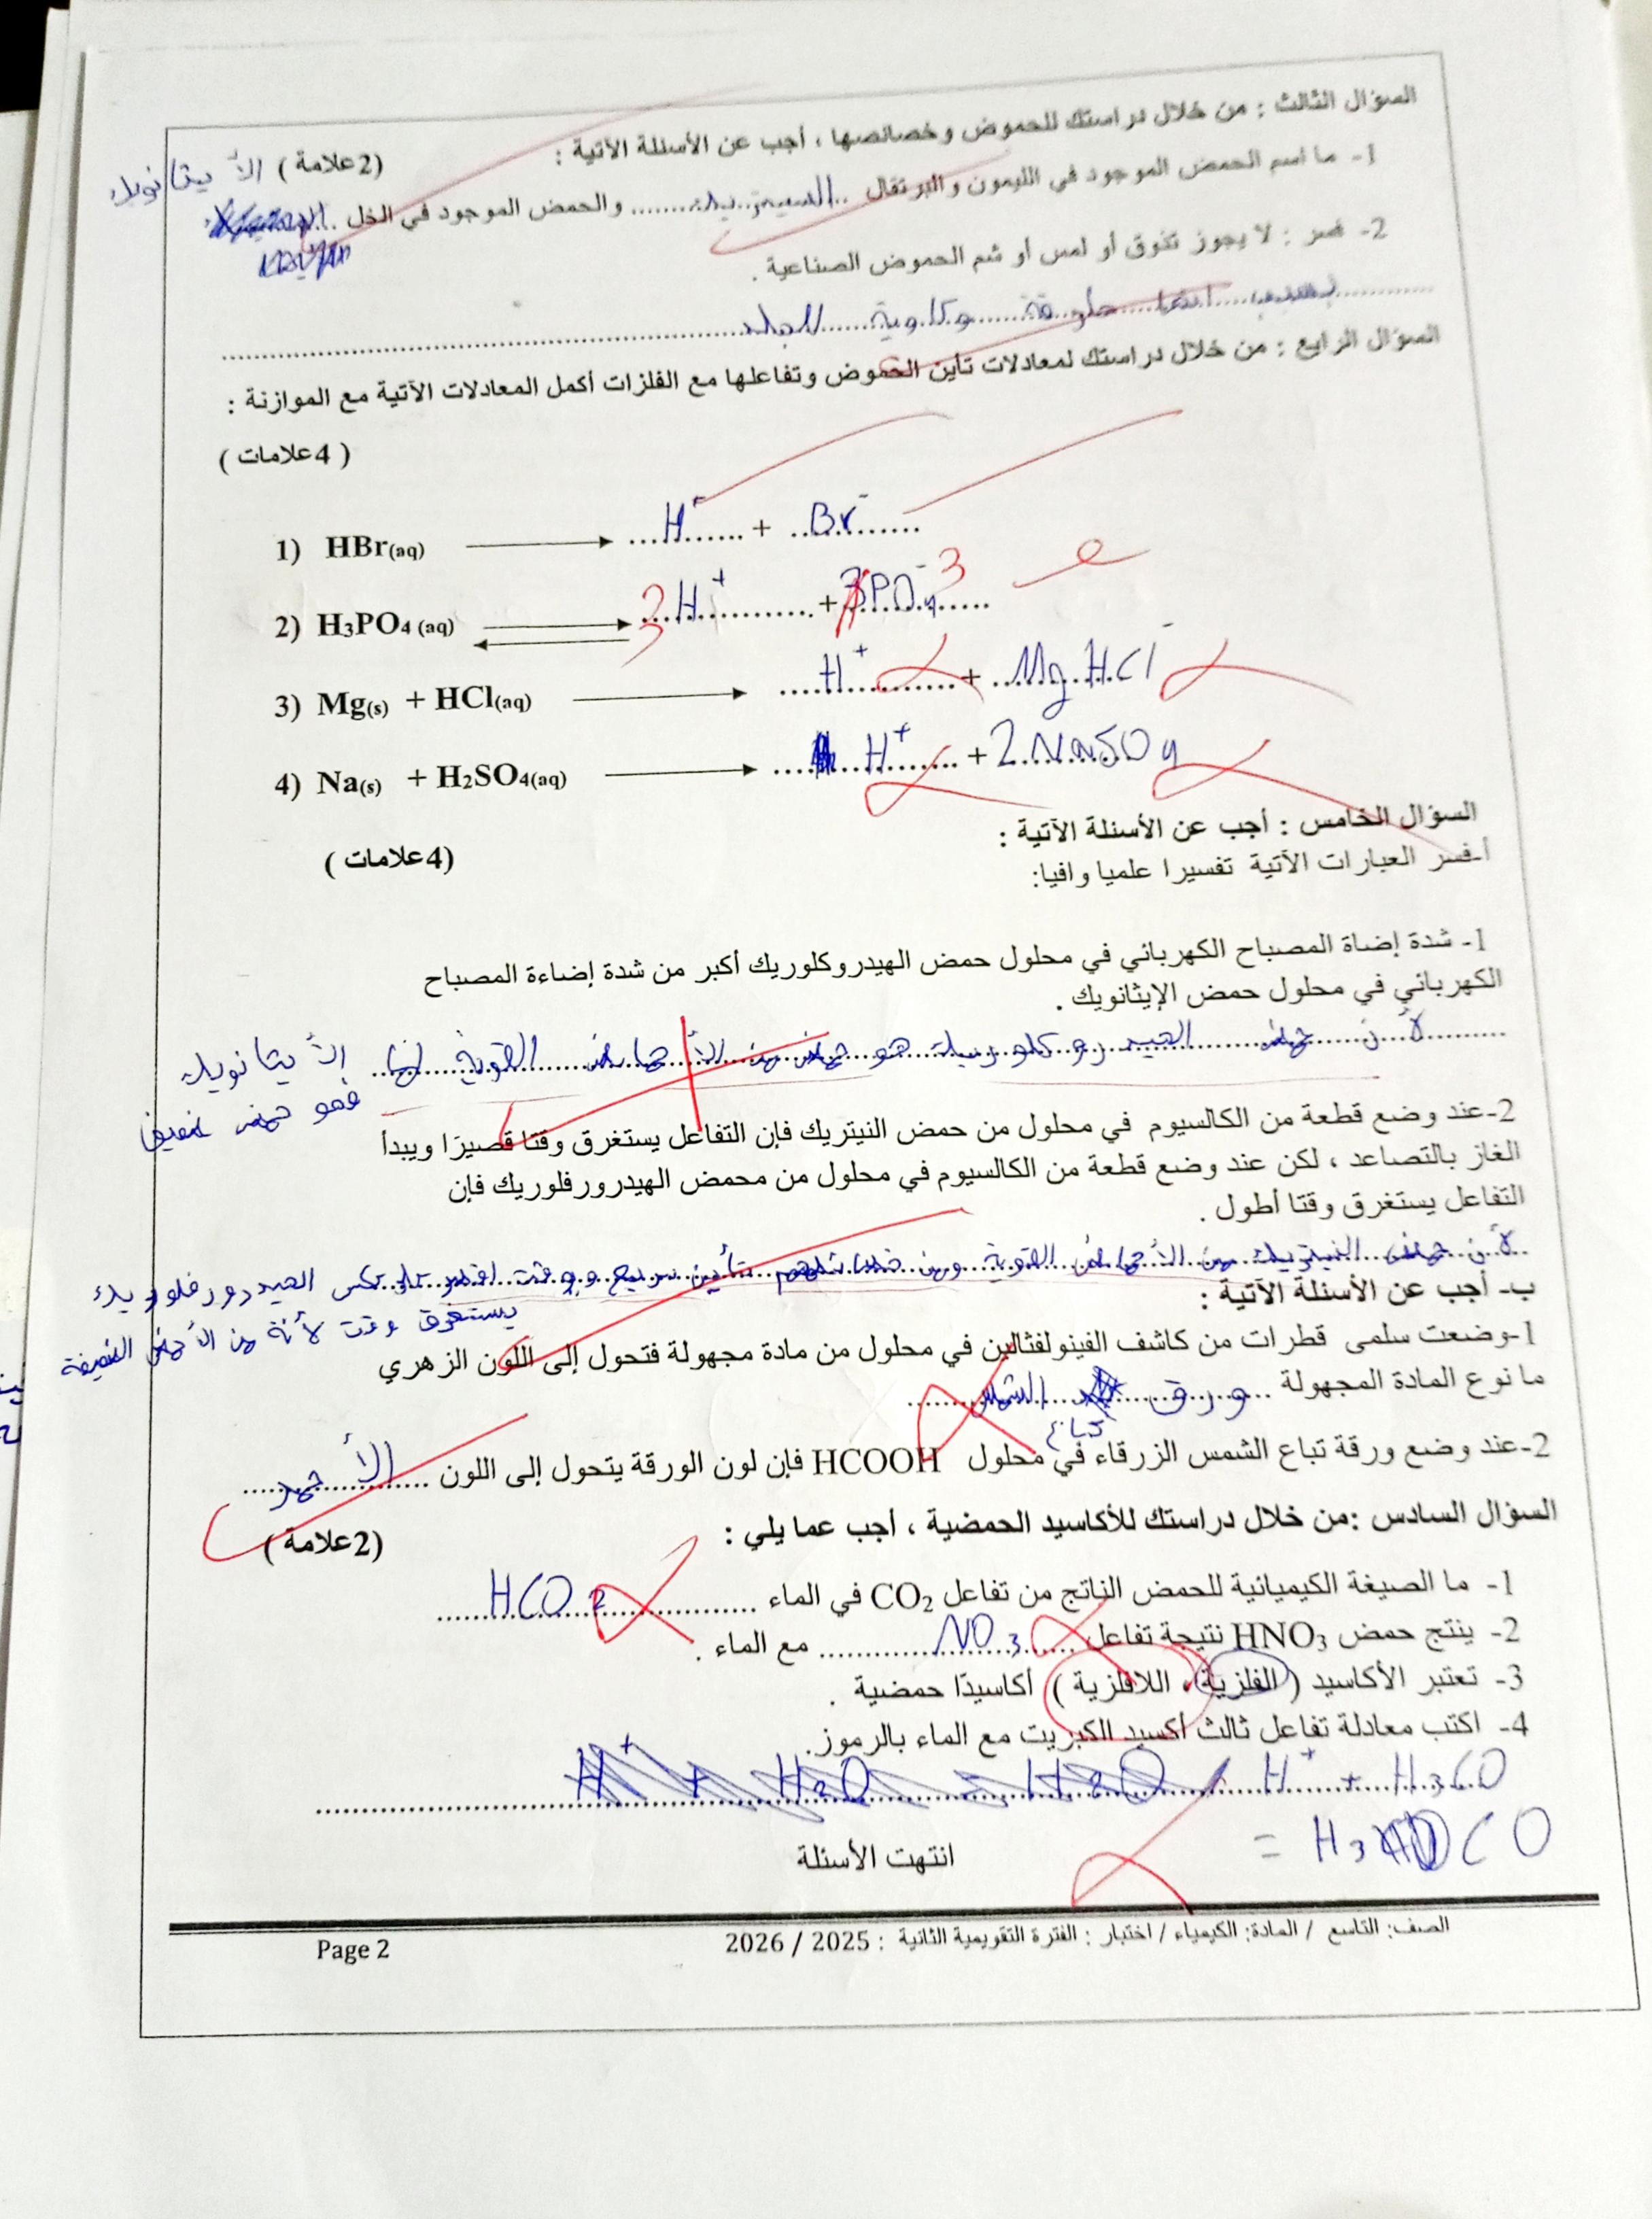 السؤال الثالث : من خلال دراستك للحموض وخصائصها ، أجب عن الأسئلة الآتية : (2علامة )
1- ما اسم الحمض الموجود في الليمون والبرتقال ..السيتريك........ والحمض الموجود في الخل ..... الأيثانويك
2- فسر : لا يجوز تذوق أو لمس أو شم الحموض الصناعية .
بسبب انها حارقة وكاوية للجلد
السؤال الرابع : من خلال دراستك لمعادلات تأين الحموض وتفاعلها مع الفلزات أكمل المعادلات الآتية مع الموازنة :
( 4علامات )
1) HBr(aq) → H⁻ + Br⁻
2) H3PO4 (aq) ⇄ 3H⁺ + PO4⁻3
3) Mg(s) + HCl(aq) → H⁺ + MgHCl⁻
4) Na(s) + H2SO4(aq) → H⁺ + 2NaSO4
السؤال الخامس : أجب عن الأسئلة الآتية :
(4علامات )
أ-فسر العبارات الآتية تفسيرا علميا وافيا:
1- شدة إضاة المصباح الكهربائي في محلول حمض الهيدروكلوريك أكبر من شدة إضاءة المصباح
الكهربائي في محلول حمض الإيثانويك .
لأن حمض الهيدروكلوريك هو حمض من الأحماض القوية أما الأيثانويك
فهو حمض ضعيف
2-عند وضع قطعة من الكالسيوم في محلول من حمض النيتريك فإن التفاعل يستغرق وقتا قصيرًا ويبدأ
الغاز بالتصاعد ، لكن عند وضع قطعة من الكالسيوم في محلول من محمض الهيدرورفلوريك فإن
التفاعل يستغرق وقتا أطول .
لأن حمض النيتريك من الأحماض القوية ومن تأين سريع ووقت على عكس الهيدروفلوريك
يستغرق وقت لأنة من الأحماض الضعيفة
ب- أجب عن الأسئلة الآتية :
1-وضعت سلمى قطرات من كاشف الفينولفثالين في محلول من مادة مجهولة فتحول إلى اللون الزهري
ما نوع المادة المجهولة ورق تباع الشمس
2-عند وضع ورقة تباع الشمس الزرقاء في محلول HCOOH فإن لون الورقة يتحول إلى اللون الأحمر
السؤال السادس :من خلال دراستك للأكاسيد الحمضية ، أجب عما يلي : (2علامة )
1- ما الصيغة الكيميائية للحمض الناتج من تفاعل CO2 في الماء HCO2
2- ينتج حمض HNO3 نتيجة تفاعل NO3 مع الماء .
3- تعتبر الأكاسيد ( الفلزية ، اللافلزية ) أكاسيدًا حمضية .
4- اكتب معادلة تفاعل ثالث أكسيد الكبريت مع الماء بالرموز.
H⁺ + H3CO
= H3 CO
انتهت الأسئلة
الصف: التاسع / المادة: الكيمياء / اختبار : الفترة التقويمية الثانية : 2025 / 2026
Page 2